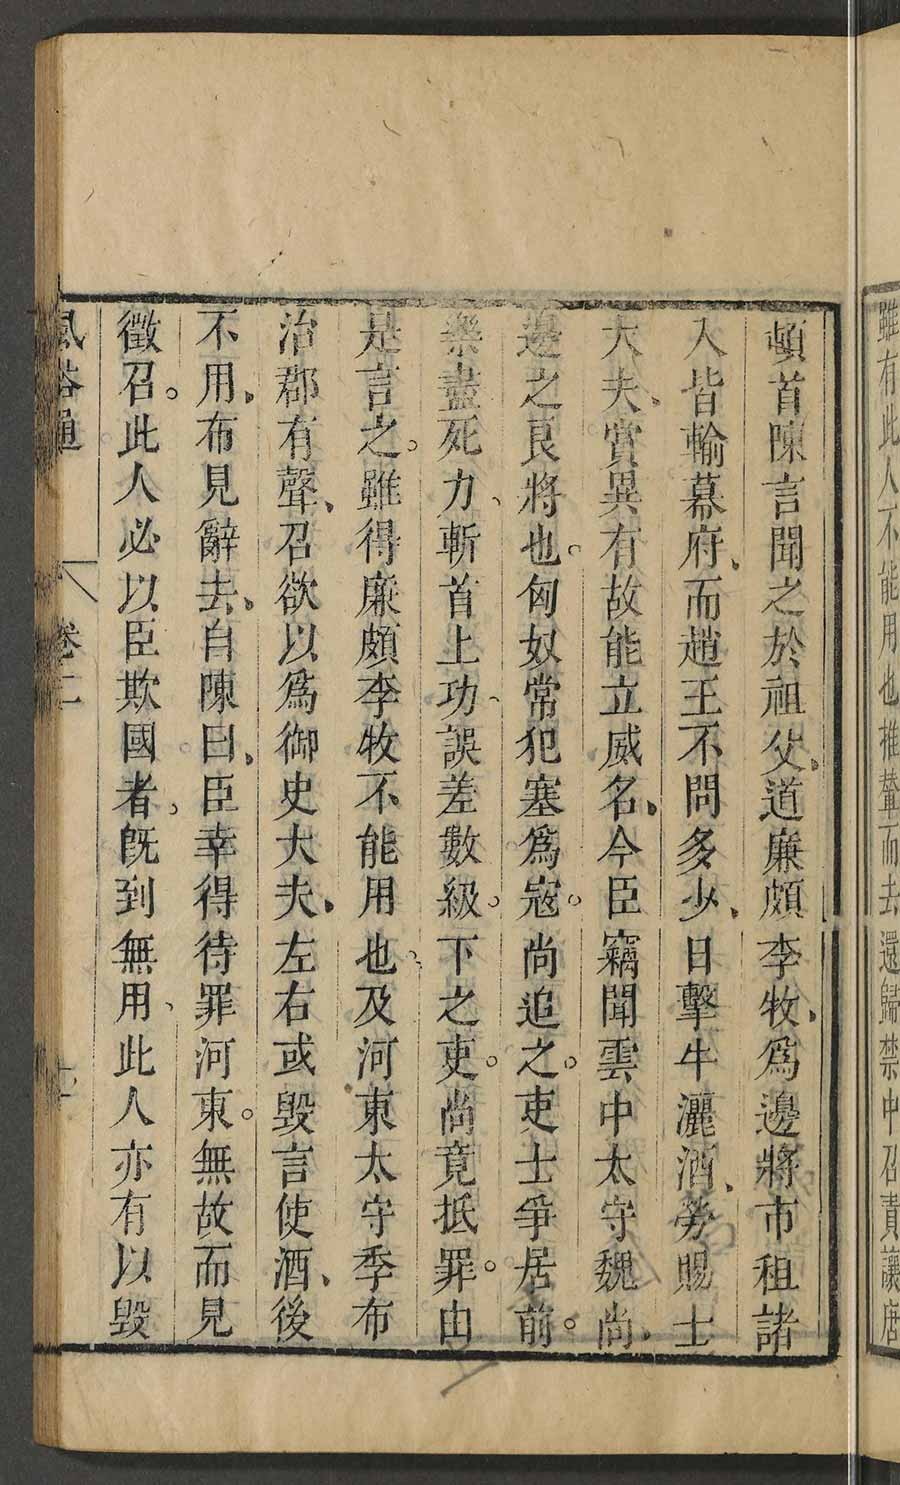 雖有此人不能用也推輦而去還歸禁中召責讓唐
頓首陳言聞之於祖父、道廉頗李牧、爲邊將市租諸
入皆輸幕府、而趙王不問多少、日擊牛灑酒、勞賜士
大夫、賞異有故能立威名、今臣竊聞雲中太守魏尚、
邊之良將也。匈奴常犯塞爲寇。尚追之。吏士爭居前。
樂盡死力、斬首上功、誤差數級。下之吏。尚竟抵罪。由
是言之。雖得廉頗李牧不能用也。及河東太守季布
治郡有聲、召欲以爲御史大夫、左右或毀言使酒、後
不用、布見辭去、自陳曰、臣幸得待罪河東。無故而見
徵召。此人必以臣欺國者。旣到無用、此人亦有以毀
風俗通 卷二